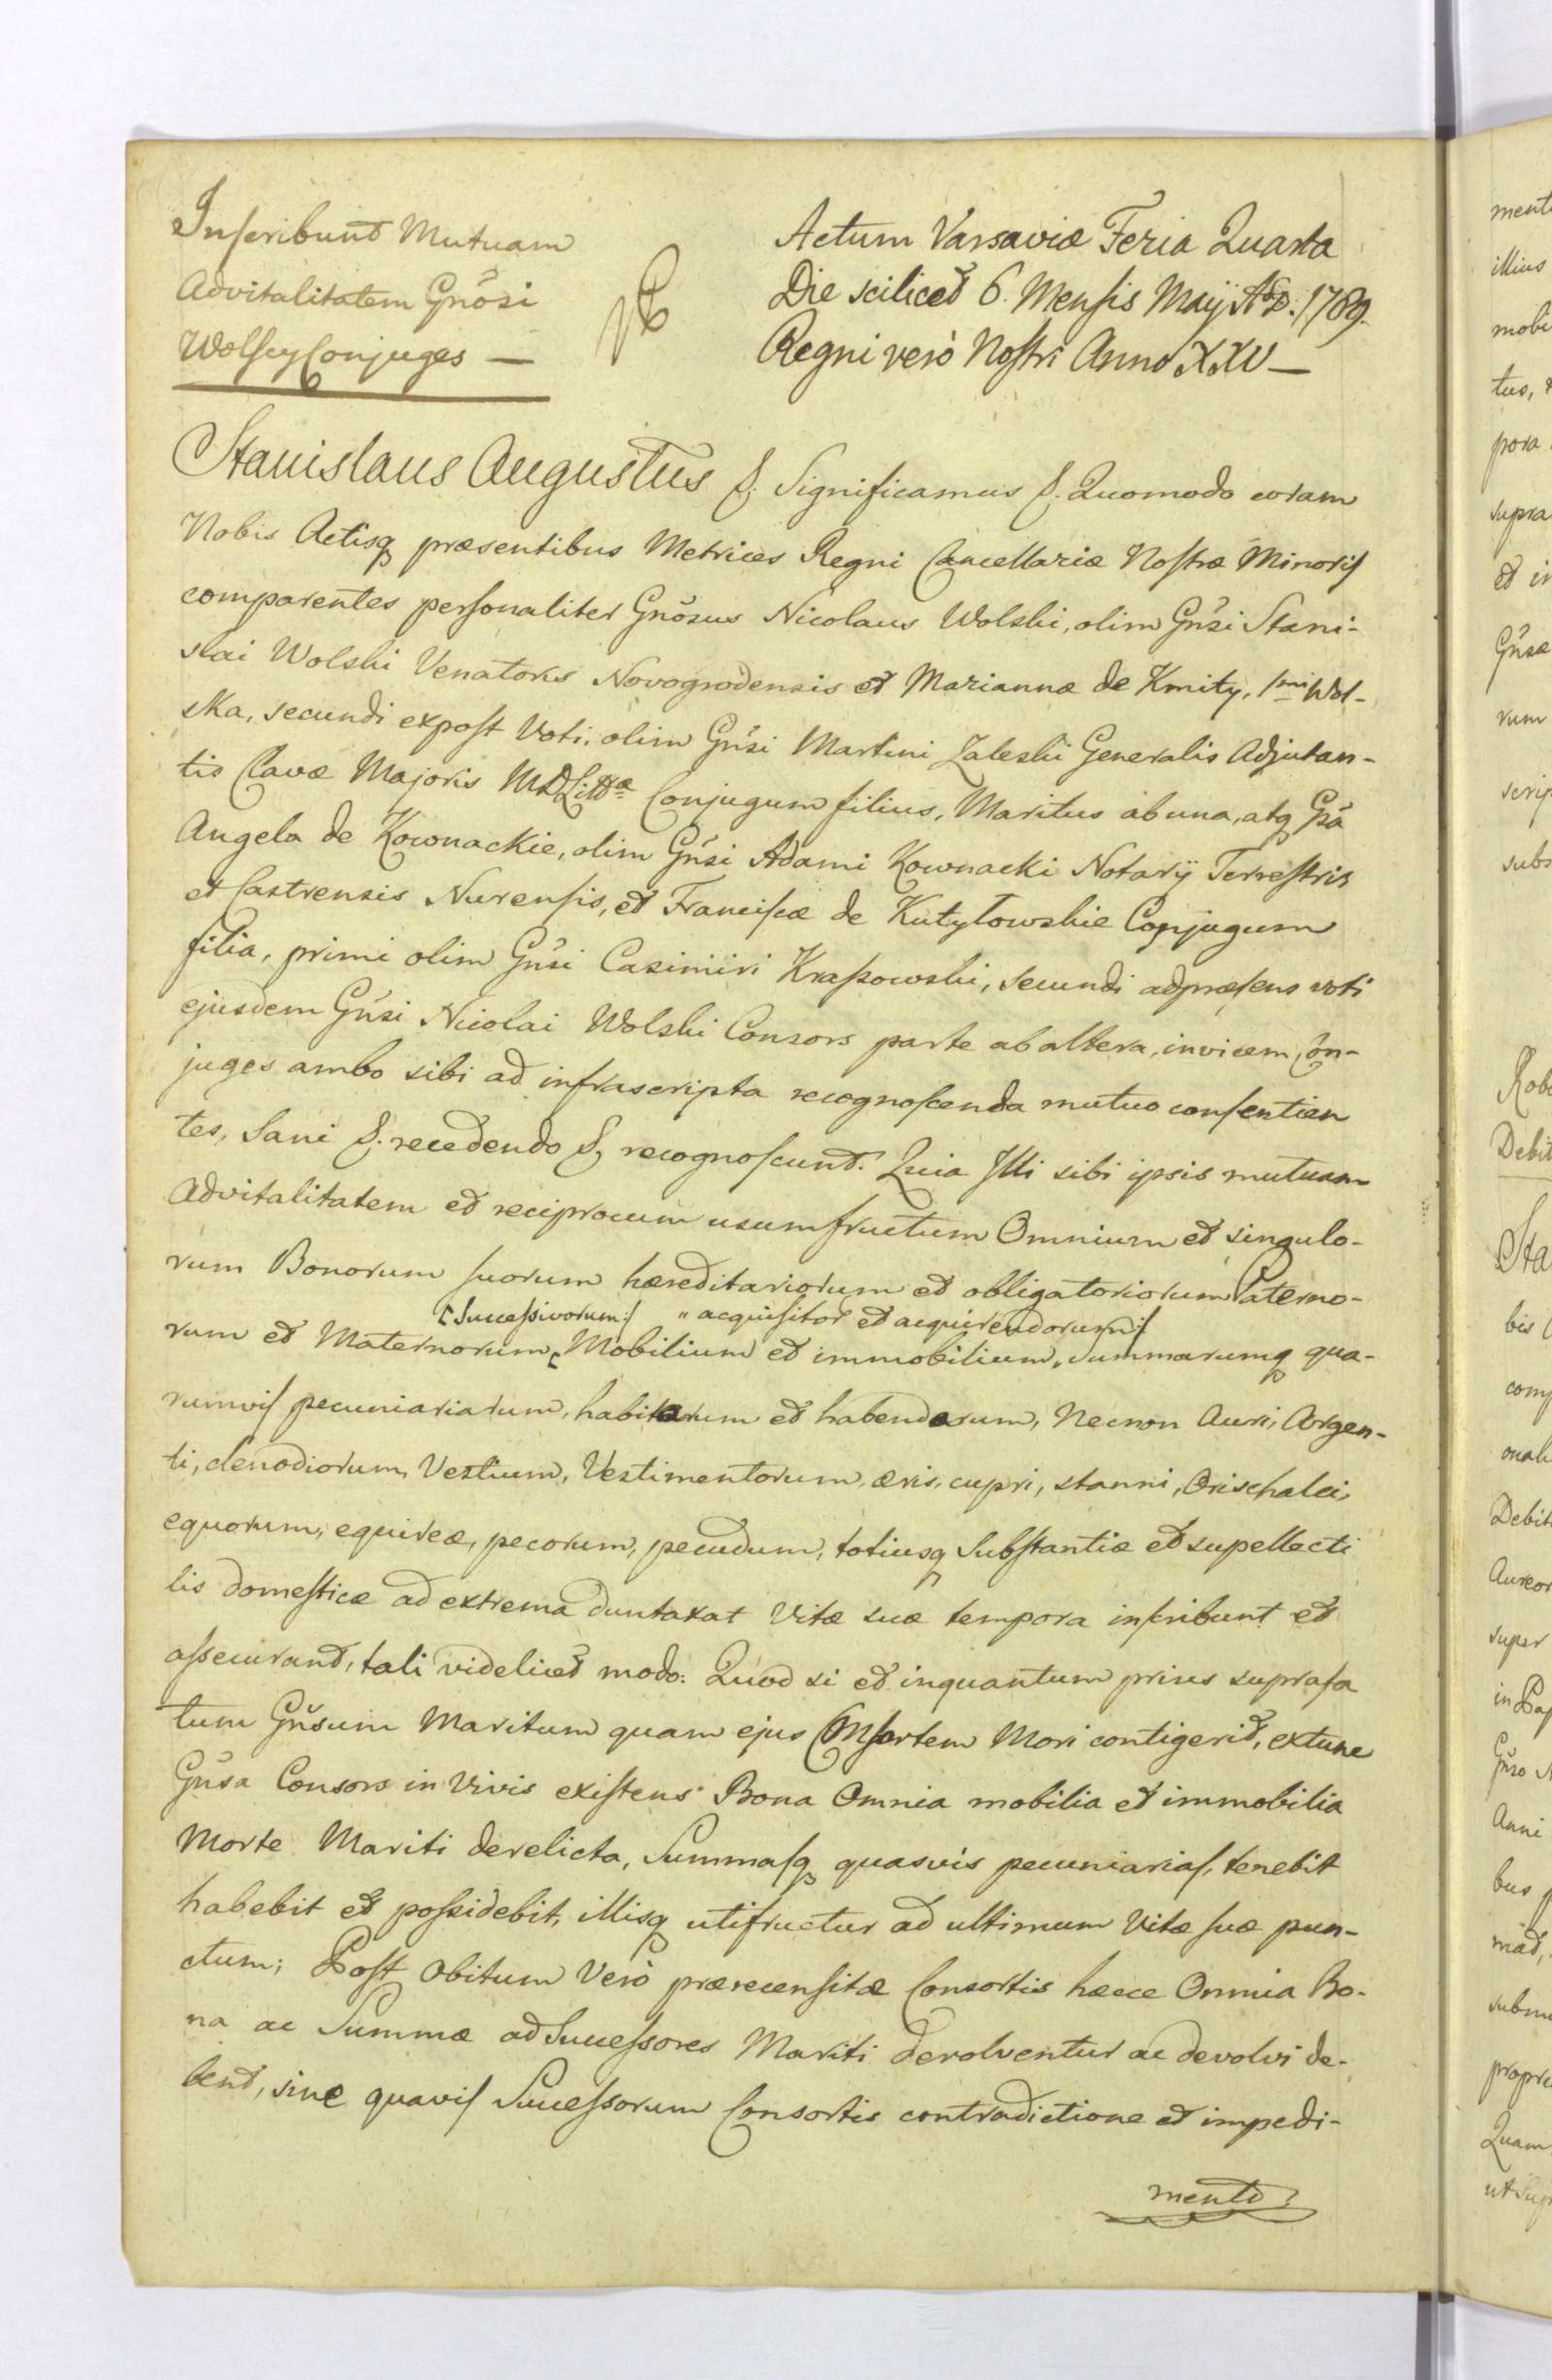 Inscribunt Mutuam
Advitalitatem Gnõsi
Wolscy Conjuges —
Actum Varsaviæ Feria Quarta
Die scilicet 6. Mensis Maij Aõ D. 1789.
Regni verò Nostri Anno XXV —
Stanislaus Augustus &. Significamus &. Quomodo coram
Nobis Actisq præsentibus Metrices Regni Cancellariæ Nostræ Minoris
comparentes personaliter Gnõsus Nicolaus Wolski, olim Gnsi Stani-
slai Wolski Venatoris Novogrodensis et Mariannæ de Kmity, 1mi Wol-
ska, secundi expost Voti, olim Gnsi Martini Zaleski Generalis Adjutan-
tis Clavæ Majoris MDLittæ Conjugum filius, Maritus ab una, atq Gsa
Angela de Kownackie, olim Gnsi Adami Kownacki Notarij Terrestris
et Castrensis Nurensis, et Franciscæ de Kutyłowskie Conjugum
filia, primi olim Gnsi Casimiri Krassowski, secundi adpræsens voti
ejusdem Gnsi Nicolai Wolski Consors parte ab altera, invicem Con-
juges ambo sibi ad infrascripta recognoscenda mutuo consentien
tes, Sani &. recedendo &, recognoscunt. Quia Illi sibi ipsis mutuam
Advitalitatem et reciprocum usumfructum Omnium et singulo-
rum Bonorum suorum hæreditariorum et obligatoriorum Paterno-
[Successivorum:/ " acquisitor et acquirendorum:/
rum et Maternorum, Mobilium et immobilium, Summarumq qua-
rumvis pecuniariarum, habitarum et habendarum, Necnon Auri, Argen-
ti, clenodiorum, Vestium, Vestimentorum, æris, cupri, stanni, Orischalci,
equorum, equireæ, pecorum, pecudum, totiusq Substantiæ et supellecti
lis domesticæ ad extrema duntaxat Vitæ suæ tempora inscribunt et
assecurant, tali videlicet modo: Quod si et inquantum prius suprafa
tum Gnsum Maritum quam ejus Consortem Mori contigerit, extunc
Gnsa Consors in Vivis existens Bona Omnia mobilia et immobilia
Morte Mariti derelicta, Summasq quasvis pecuniarias, tenebit
habebit et possidebit, illisq utifruetur ad ultimum Vitæ suæ pun-
ctum; Post Obitum Verò prærecensitæ Consortis hæcce Omnia Bo-
na ac Summæ ad Successores Mariti devolventur ac devolvi de-
bent, sine quavis Successorum Consortis contradictione et impedi-
mento